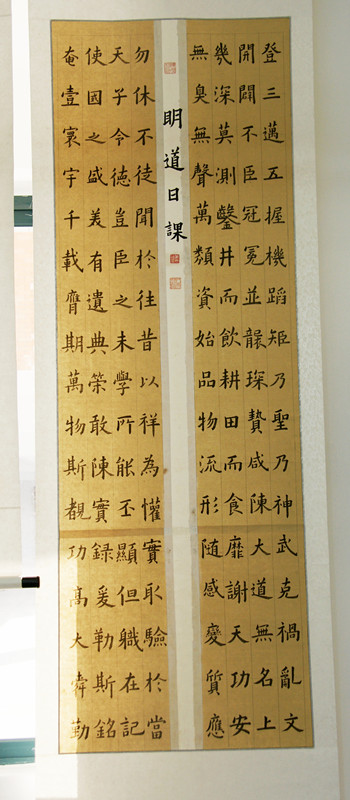 登三邁五握機蹈矩乃聖乃神武克禍亂文
開闢不臣冠冕並襲琛贄咸陳大道無名上
幾深莫測鑿井而飲耕田而食靡謝天功安
無臭無聲萬類資始品物流形随感變質應
明道日課
勿休不徒聞於往昔以祥為懽實取驗於當
天子令德豈臣之未學所能丕顯但職在記
使國之盛美有遺典榮敢陳實録爰勒斯銘
奄壹寰宇千載膺期萬物斯覩功高大舜勤